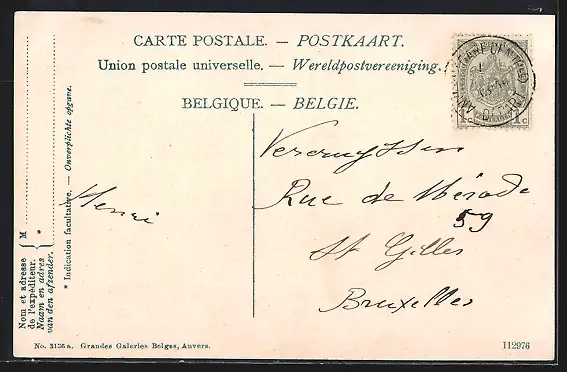 CARTE POSTALE. — POSTKAART.
Union postale universelle. — Wereldpostvereeniging.
BELGIQUE. — BELGIE.
1c 1c
DÉPART
Vercruyssen
Rue de Mérode
59
St Gilles
Bruxelles
Henri
* Indication facultative. — Onverplichte opgave.
M
Nom et adresse
de l'expéditeur.
Naam en adres
van den afzender.
*
No. 3136 a. Grandes Galeries Belges, Anvers.
112976